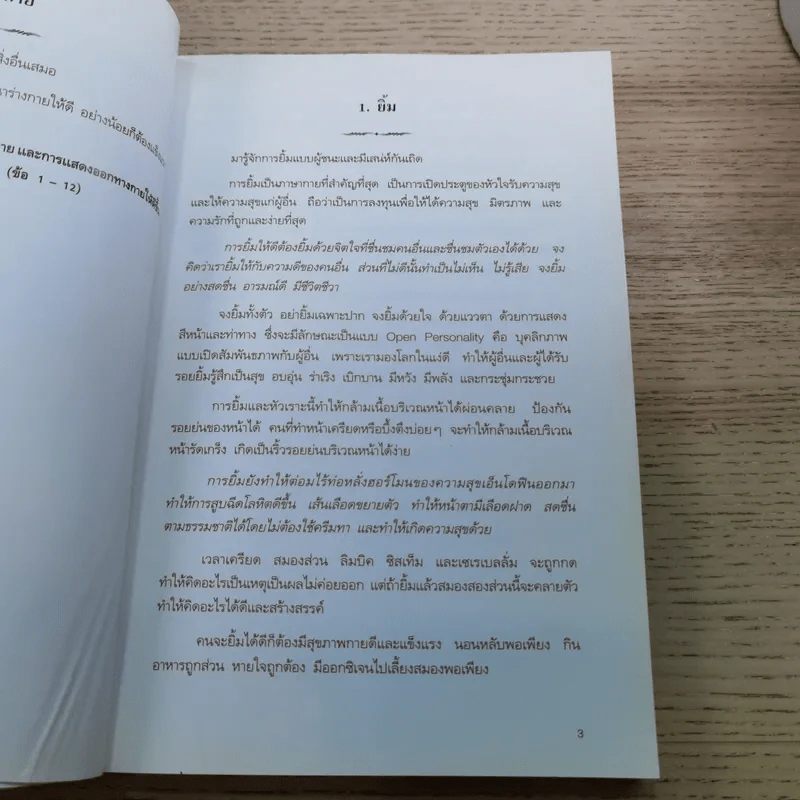 สิ่งอื่นเสมอ
ร่างกายให้ดี อย่างน้อยก็ต้อง
และการแสดงออกทางกาย
(ข้อ 1 – 12)
1. ยิ้ม
มารู้จักการยิ้มแบบผู้ชนะและมีเสน่ห์กันเถิด
การยิ้มเป็นภาษากายที่สำคัญที่สุด เป็นการเปิดประตูของหัวใจรับความสุข
และให้ความสุขแก่ผู้อื่น ถือว่าเป็นการลงทุนเพื่อให้ได้ความสุข มิตรภาพ และ
ความรักที่ถูกและง่ายที่สุด
การยิ้มให้ดีต้องยิ้มด้วยจิตใจที่ชื่นชมคนอื่นและชื่นชมตัวเองได้ด้วย จง
คิดว่าเรายิ้มให้กับความดีของคนอื่น ส่วนที่ไม่ดีนั้นทำเป็นไม่เห็น ไม่รู้เสีย จงยิ้ม
อย่างสดชื่น อารมณ์ดี มีชีวิตชีวา
จงยิ้มทั้งตัว อย่ายิ้มเฉพาะปาก จงยิ้มด้วยใจ ด้วยแววตา ด้วยการแสดง
สีหน้าและท่าทาง ซึ่งจะมีลักษณะเป็นแบบ Open Personality คือ บุคลิกภาพ
แบบเปิดสัมพันธภาพกับผู้อื่น เพราะเรามองโลกในแง่ดี ทำให้ผู้อื่นและผู้ได้รับ
รอยยิ้มรู้สึกเป็นสุข อบอุ่น ร่าเริง เบิกบาน มีหวัง มีพลัง และกระชุ่มกระชวย
การยิ้มและหัวเราะนี้ทำให้กล้ามเนื้อบริเวณหน้าได้ผ่อนคลาย ป้องกัน
รอยย่นของหน้าได้ คนที่ทำหน้าเครียดหรือบึ้งตึงบ่อยๆ จะทำให้กล้ามเนื้อบริเวณ
หน้ารัดเกร็ง เกิดเป็นริ้วรอยย่นบริเวณหน้าได้ง่าย
การยิ้มยังทำให้ต่อมไร้ท่อหลั่งฮอร์โมนของความสุขเอ็นโดฟินออกมา
ทำให้การสูบฉีดโลหิตดีขึ้น เส้นเลือดขยายตัว ทำให้หน้าตามีเลือดฝาด สดชื่น
ตามธรรมชาติได้โดยไม่ต้องใช้ครีมทา และทำให้เกิดความสุขด้วย
เวลาเครียด สมองส่วน ลิมบิค ซิสเท็ม และเซเรเบลลั่ม จะถูกกด
ทำให้คิดอะไรเป็นเหตุเป็นผลไม่ค่อยออก แต่ถ้ายิ้มแล้วสมองสองส่วนนี้จะคลายตัว
ทำให้คิดอะไรได้ดีและสร้างสรรค์
คนจะยิ้มได้ดีก็ต้องมีสุขภาพกายดีและแข็งแรง นอนหลับพอเพียง กิน
อาหารถูกส่วน หายใจถูกต้อง มีออกซิเจนไปเลี้ยงสมองพอเพียง
3